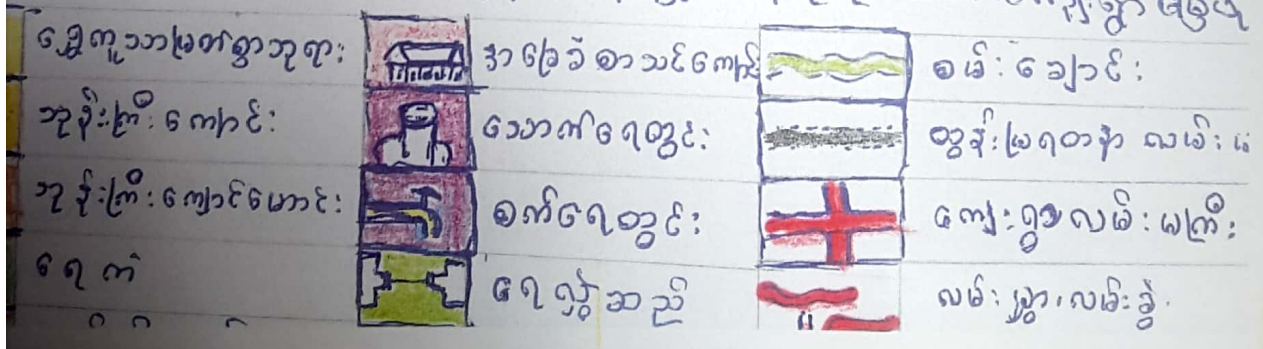 ရွှေကူသာမြတ်စွာဘုရား
ဘုန်းကြီးကျောင်း
ဘုန်းကြီးကျောင်းဟောင်း
ရေကံ
အခြေခံစာသင်ကျောင်း
သောက်ရေတွင်း
စက်ရေတွင်း
ရေလွှဲဆည်
စမ်းချောင်း
ထွန်းပြရတနာလမ်း
ကျေးရွာလမ်းမကြီး
လမ်းသွယ်၊လမ်းခွဲ